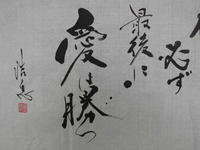 必ず
最後に
愛は勝つ